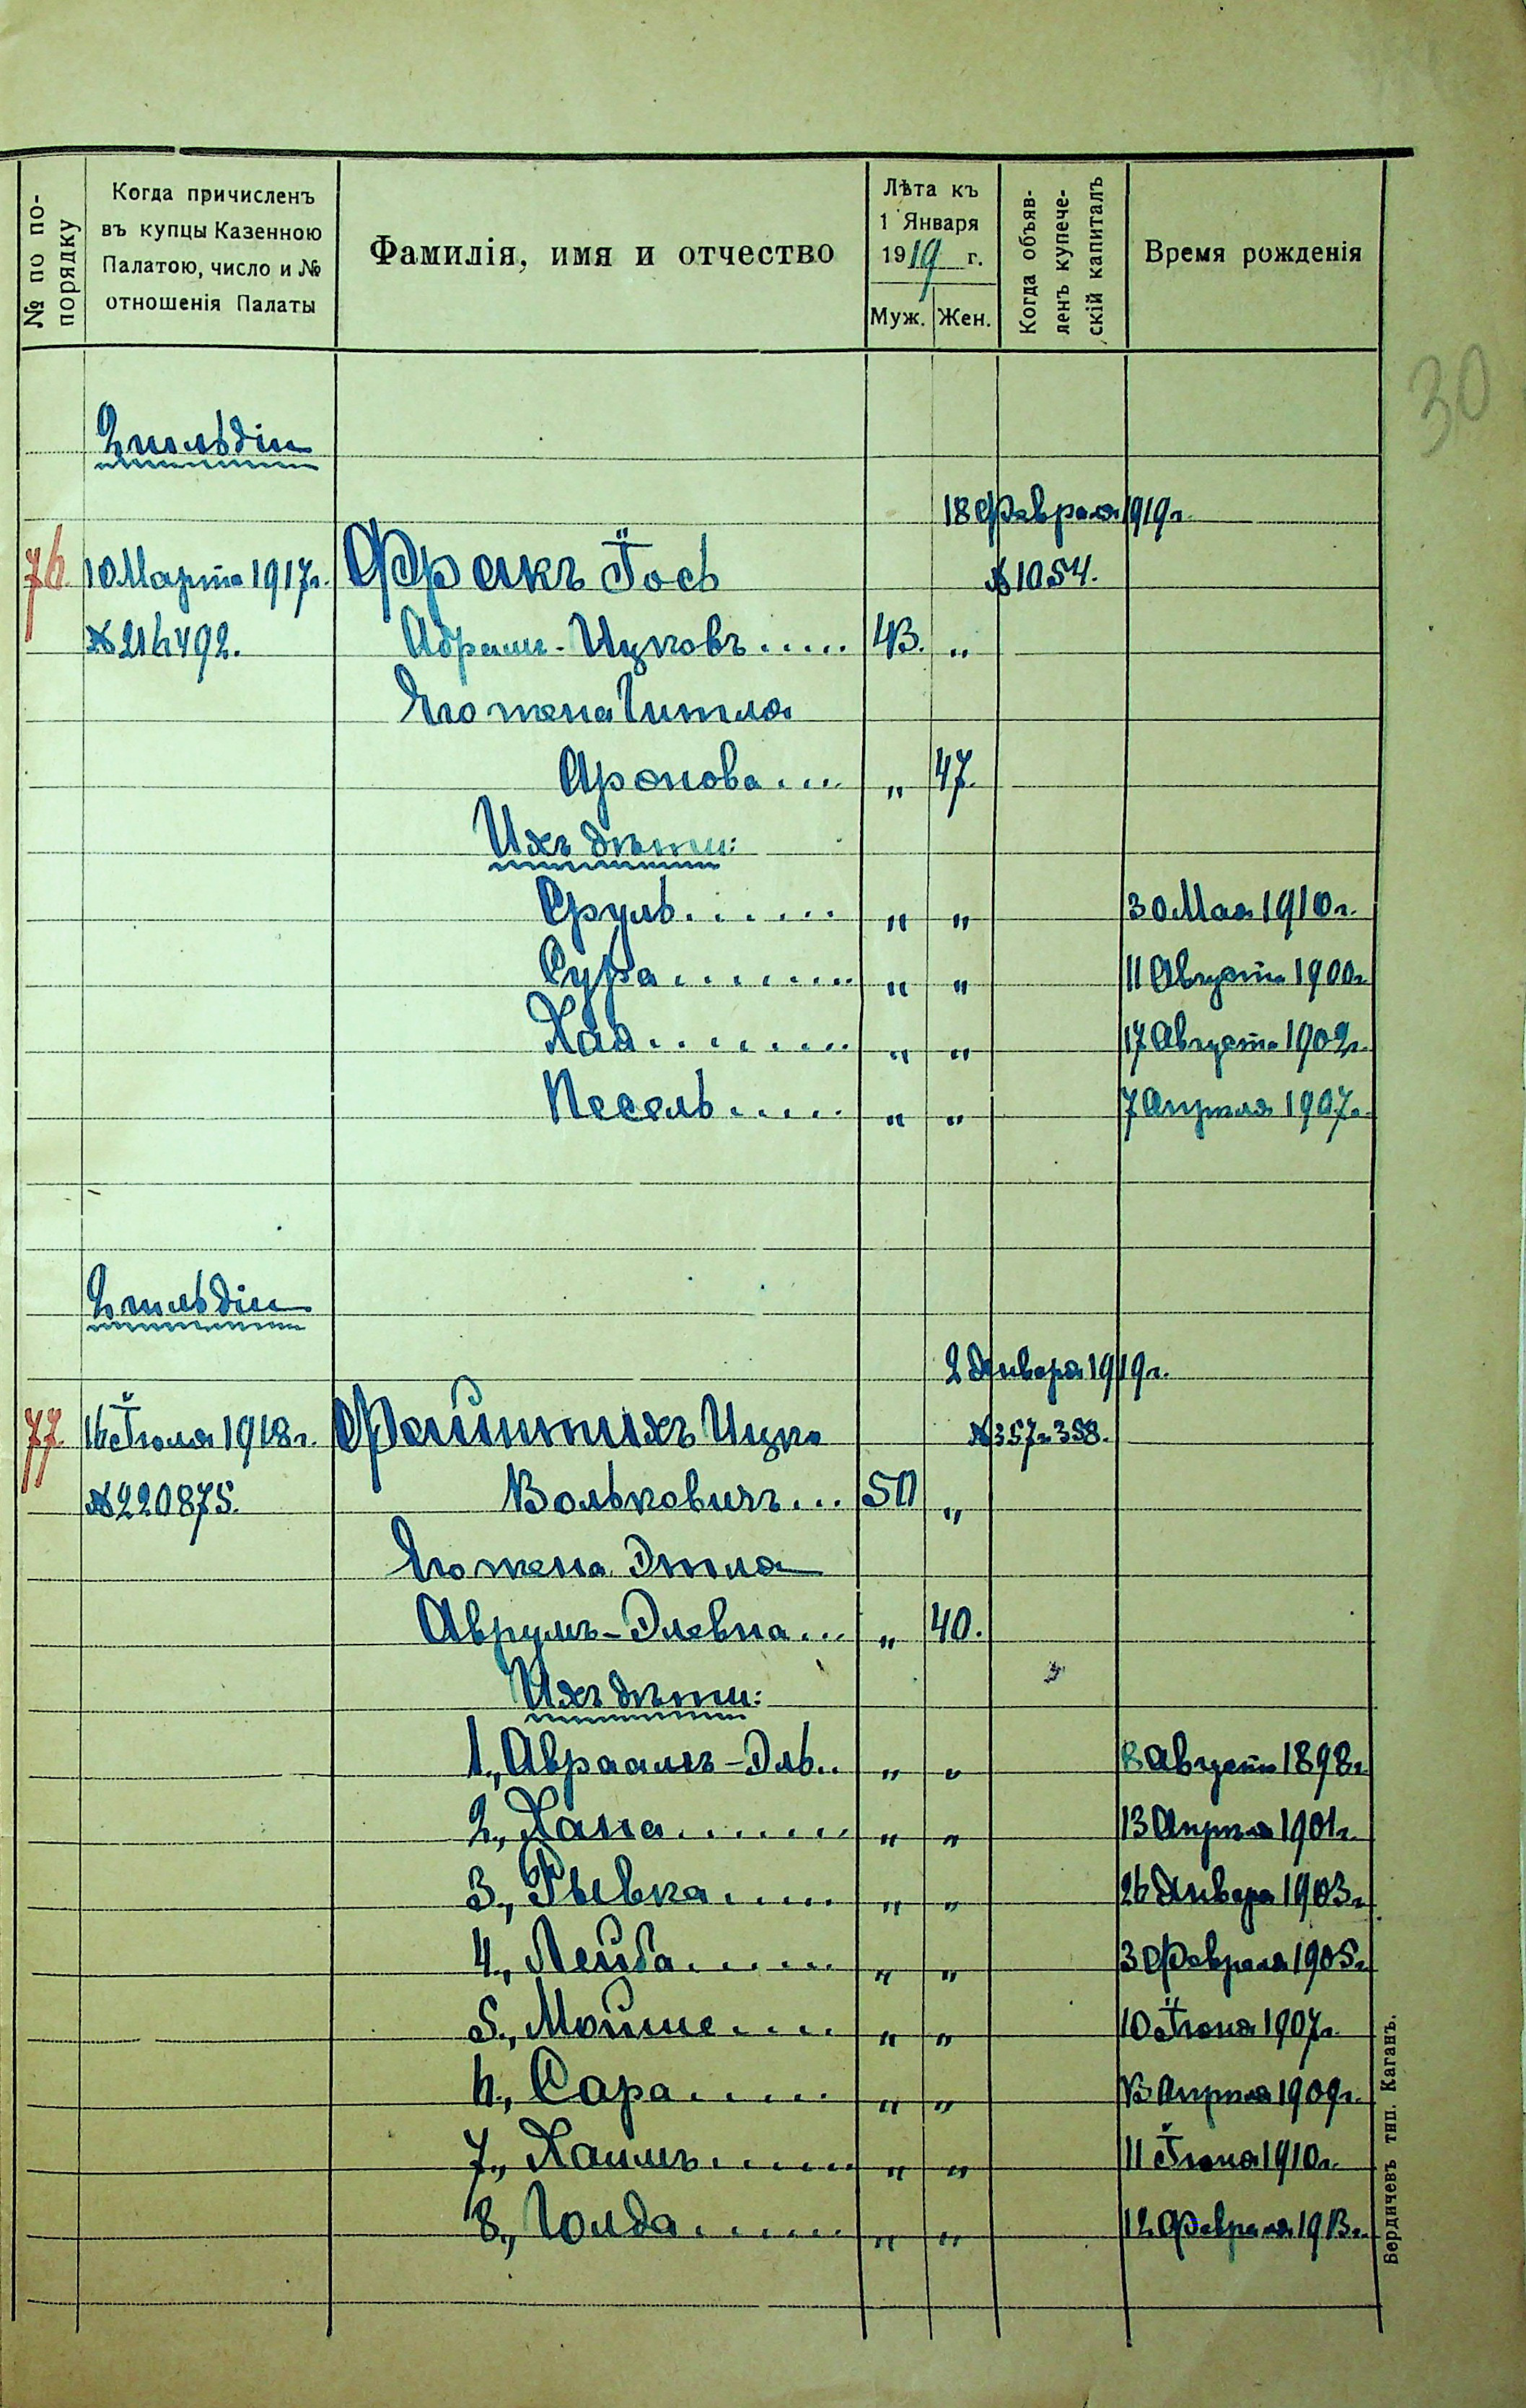 № по по-
порядку
Когда причисленъ
въ купцы Казенною
Палатою, число и №
отношенія Палаты
Фамилія, имя и отчество
Лѣта къ
1 Января
1919 г.
Муж. Жен.
Когда объяв-
ленъ купече-
скій капиталъ
Время рожденія
30
2 гильдіи
18 Февраля 1919 г.
76. 10 Марта 1917 г. Фракъ Іось №1054.
№216492. Абрамъ-Ицковъ..... 43. „
Его жена Гитля
Аронова.... „ 47.
Ихъ дѣти:
Сруль...... „ „ 30 Мая 1910 г.
Сура........ „ „ 11 Августа 1900 г.
Хая......... „ „ 17 Августа 1902 г.
Песель..... „ „ 7 Апрѣля 1907 г.
2 гильдіи
2 Января 1919 г.
77. 16 Іюля 1918 г. Файнтихъ Ицко №357 и 358.
№220875. Вольковичъ... 50 „
Его жена Этля
Аврумъ-Элевна... „ 40.
Ихъ дѣти:
1., Авраамъ-Эль.. „ „ 8 Августа 1898 г.
2., Хана....... „ „ 13 Апрѣля 1901 г.
3., Рывка..... „ „ 26 Января 1903 г.
4., Лейба...... „ „ 3 Февраля 1905 г.
5., Мойше.... „ „ 10 Іюня 1907 г.
6., Сара..... „ „ 13 Апрѣля 1909 г.
7., Хаимъ...... „ „ 11 Іюня 1910 г.
8., Голда...... „ „ 12 Февраля 1913 г.
Бердичевъ тип. Каганъ.